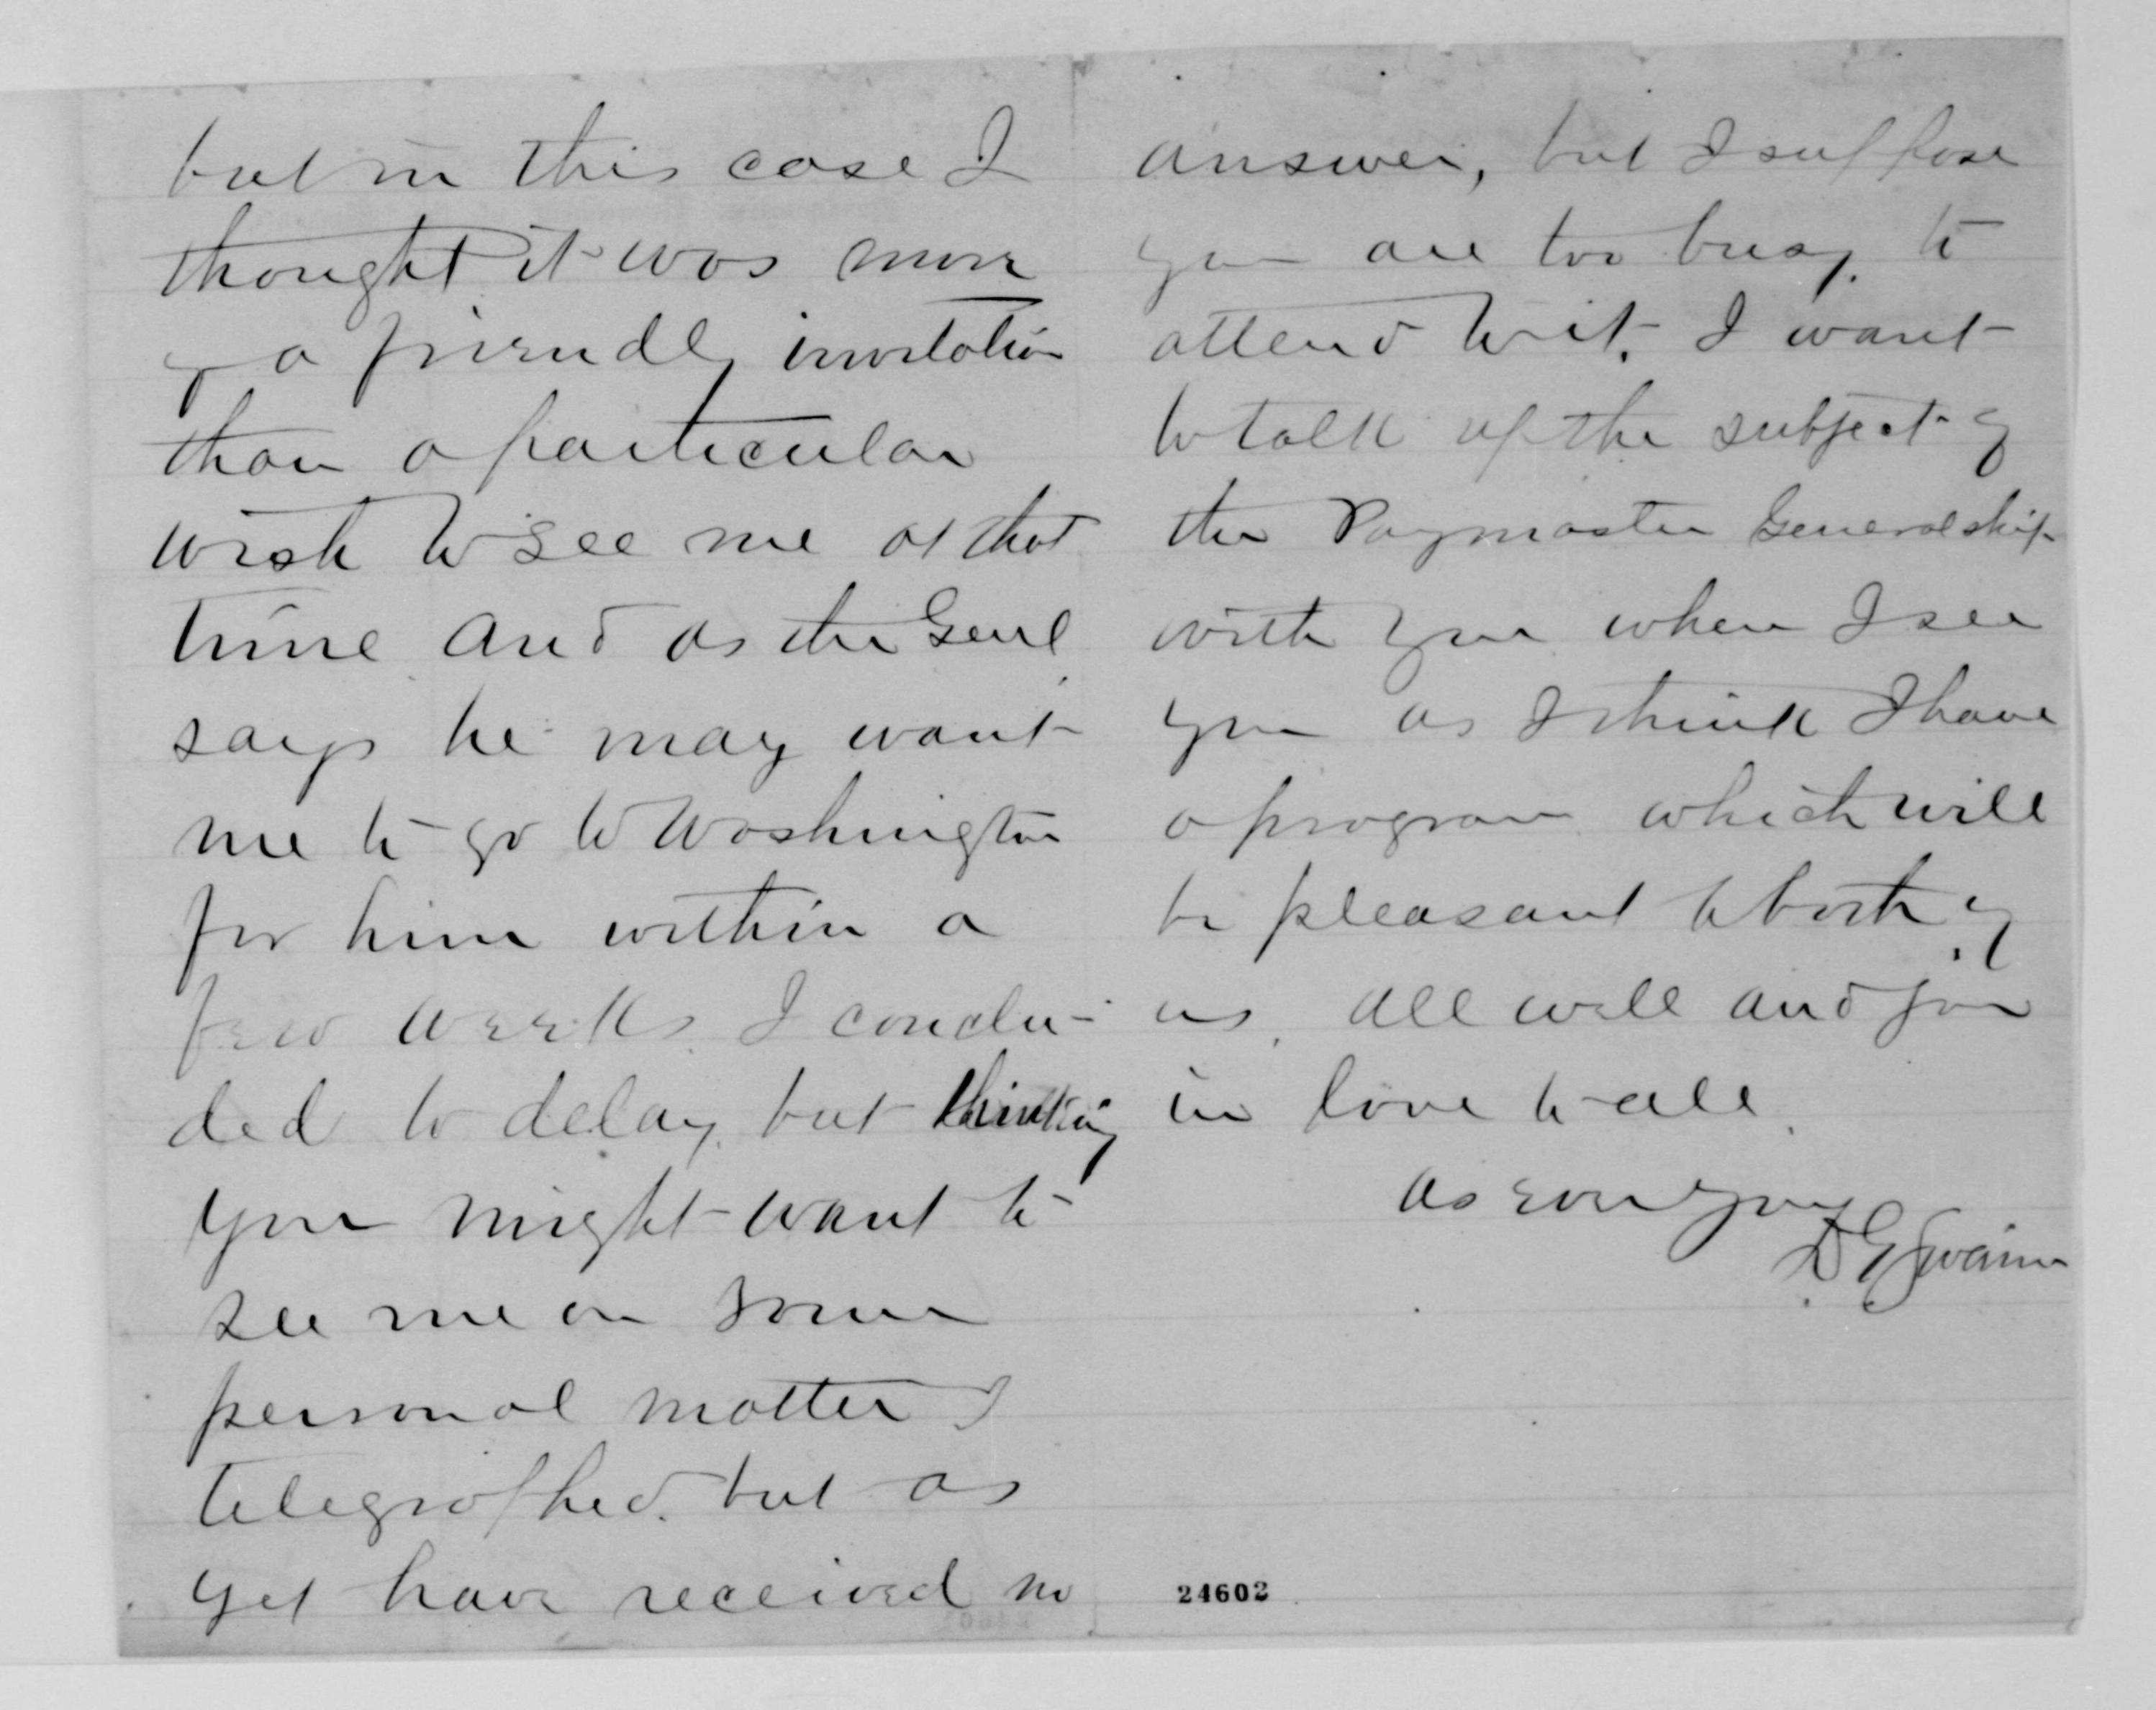 but in this case I
thought it was more
of a friendly invitation
than a particular
wish to see me at that
time and as the Genl
says he may want
me to go to Washington
for him within a
few weeks I conclu-
ded to delay, but thinking
you might want to
see me on some
personal matter I
telegraphed. but as
yet have received no
answer, but I suppose
you are too busy to
attend to it. I want
to talk up the subject of
the Paymaster Generalship
with you when I see
you as I think I have
a program which will
be pleasant to both of
us. All well and join
in love to all.
As ever yours
D G Swaim
24602